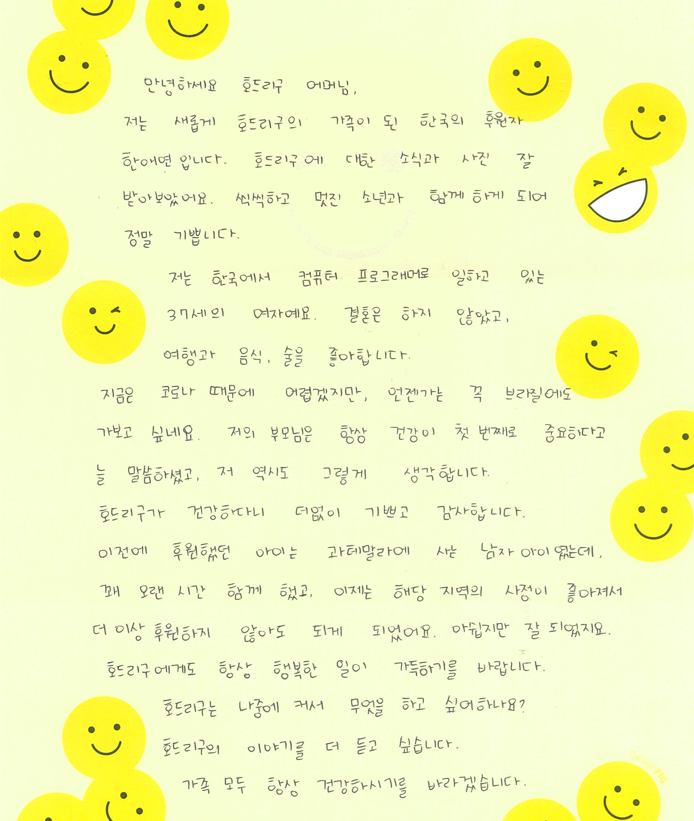 안녕하세요 호드리구 어머님,
저는 새롭게 호드리구의 가족이 된 한국의 후원자
한애연 입니다. 호드리구에 대한 소식과 사진 잘
받아보았어요. 씩씩하고 멋진 소년과 함께 하게 되어
정말 기쁩니다.
저는 한국에서 컴퓨터 프로그래머로 일하고 있는
37세의 여자예요. 결혼은 하지 않았고,
여행과 음식, 술을 좋아합니다.
지금은 코로나 때문에 어렵겠지만, 언젠가는 꼭 브라질에도
가보고 싶네요. 저의 부모님은 항상 건강이 첫 번째로 중요하다고
늘 말씀하셨고, 저 역시도 그렇게 생각합니다.
호드리구가 건강하다니 더없이 기쁘고 감사합니다.
이전에 후원했던 아이는 과테말라에 사는 남자 아이였는데,
꽤 오랜 시간 함께 했고, 이제는 해당 지역의 사정이 좋아져서
더 이상 후원하지 않아도 되게 되었어요. 아쉽지만 잘 되었지요.
호드리구에게도 항상 행복한 일이 가득하기를 바랍니다.
호드리구는 나중에 커서 무엇을 하고 싶어하나요?
호드리구의 이야기를 더 듣고 싶습니다.
가족 모두 항상 건강하시기를 바라겠습니다.